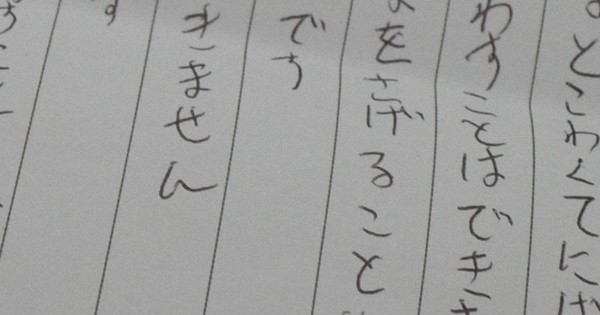 とこわくてにげ
わすことはでき
をさげること
です
きません
す